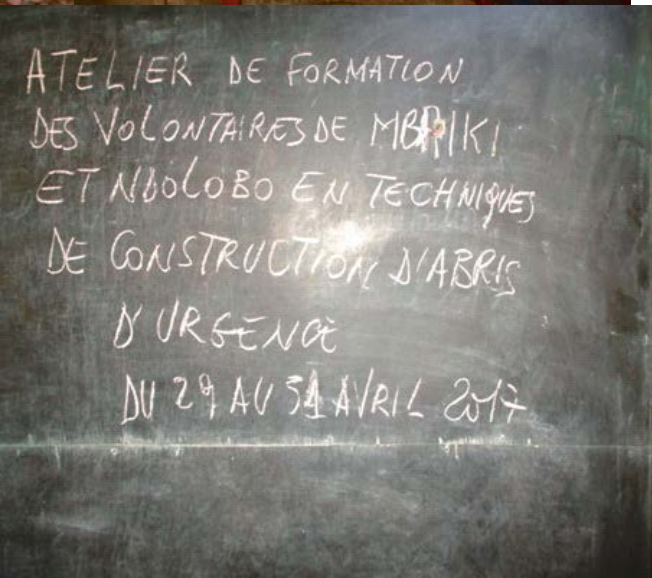 ATELIER DE FORMATION
DES VOLONTAIRES DE MBAIKI
ET NDOLOBO EN TECHNIQUES
DE CONSTRUCTION D'ABRIS
D'URGENCE
DU 29 AU 31 AVRIL 2017